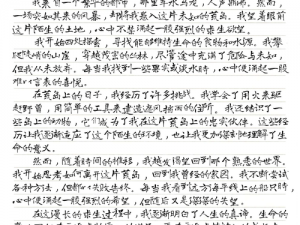 我来自一个繁华的都市，那里车水马龙，人声鼎沸。然而，一
场突如其来的风暴，却将我卷入这片未知的荒岛。我望着眼前
这片陌生的土地，心中不禁涌起一股强烈的求生欲望。
我开始四处探索，寻找能够维持生命的食物和水源。我攀
爬陡峭的山崖，穿越茂密的丛林，尽管途中充满了危险与未知，
但我从未放弃。每当我找到一些野果或淡水时，心中便涌起一股
难以言表的喜悦。
在荒岛的日子，我经历了许多挑战。我学会了用火来驱
赶野兽，用简单的工具来建造遮风挡雨的住所。我还结识了一
些岛上的动物，它们成为了我在这片荒岛的忠实伙伴。这些经
历让我逐渐适应了这个陌生的环境，也让我更加深刻地理解了生
命的意义。
然而，随着时间的推移，我越发渴望回到那个熟悉的世界。
我开始思考如何离开这片荒岛，回到我曾经的家园。我不断尝试
各种方法，但都以失败告终。每当我看到远方海平线上的船只时，
心中便涌起一股强烈的希望，但随后又是深深的失望。
在这漫长的求生过程中，我逐渐明白了人生的真谛。生命的